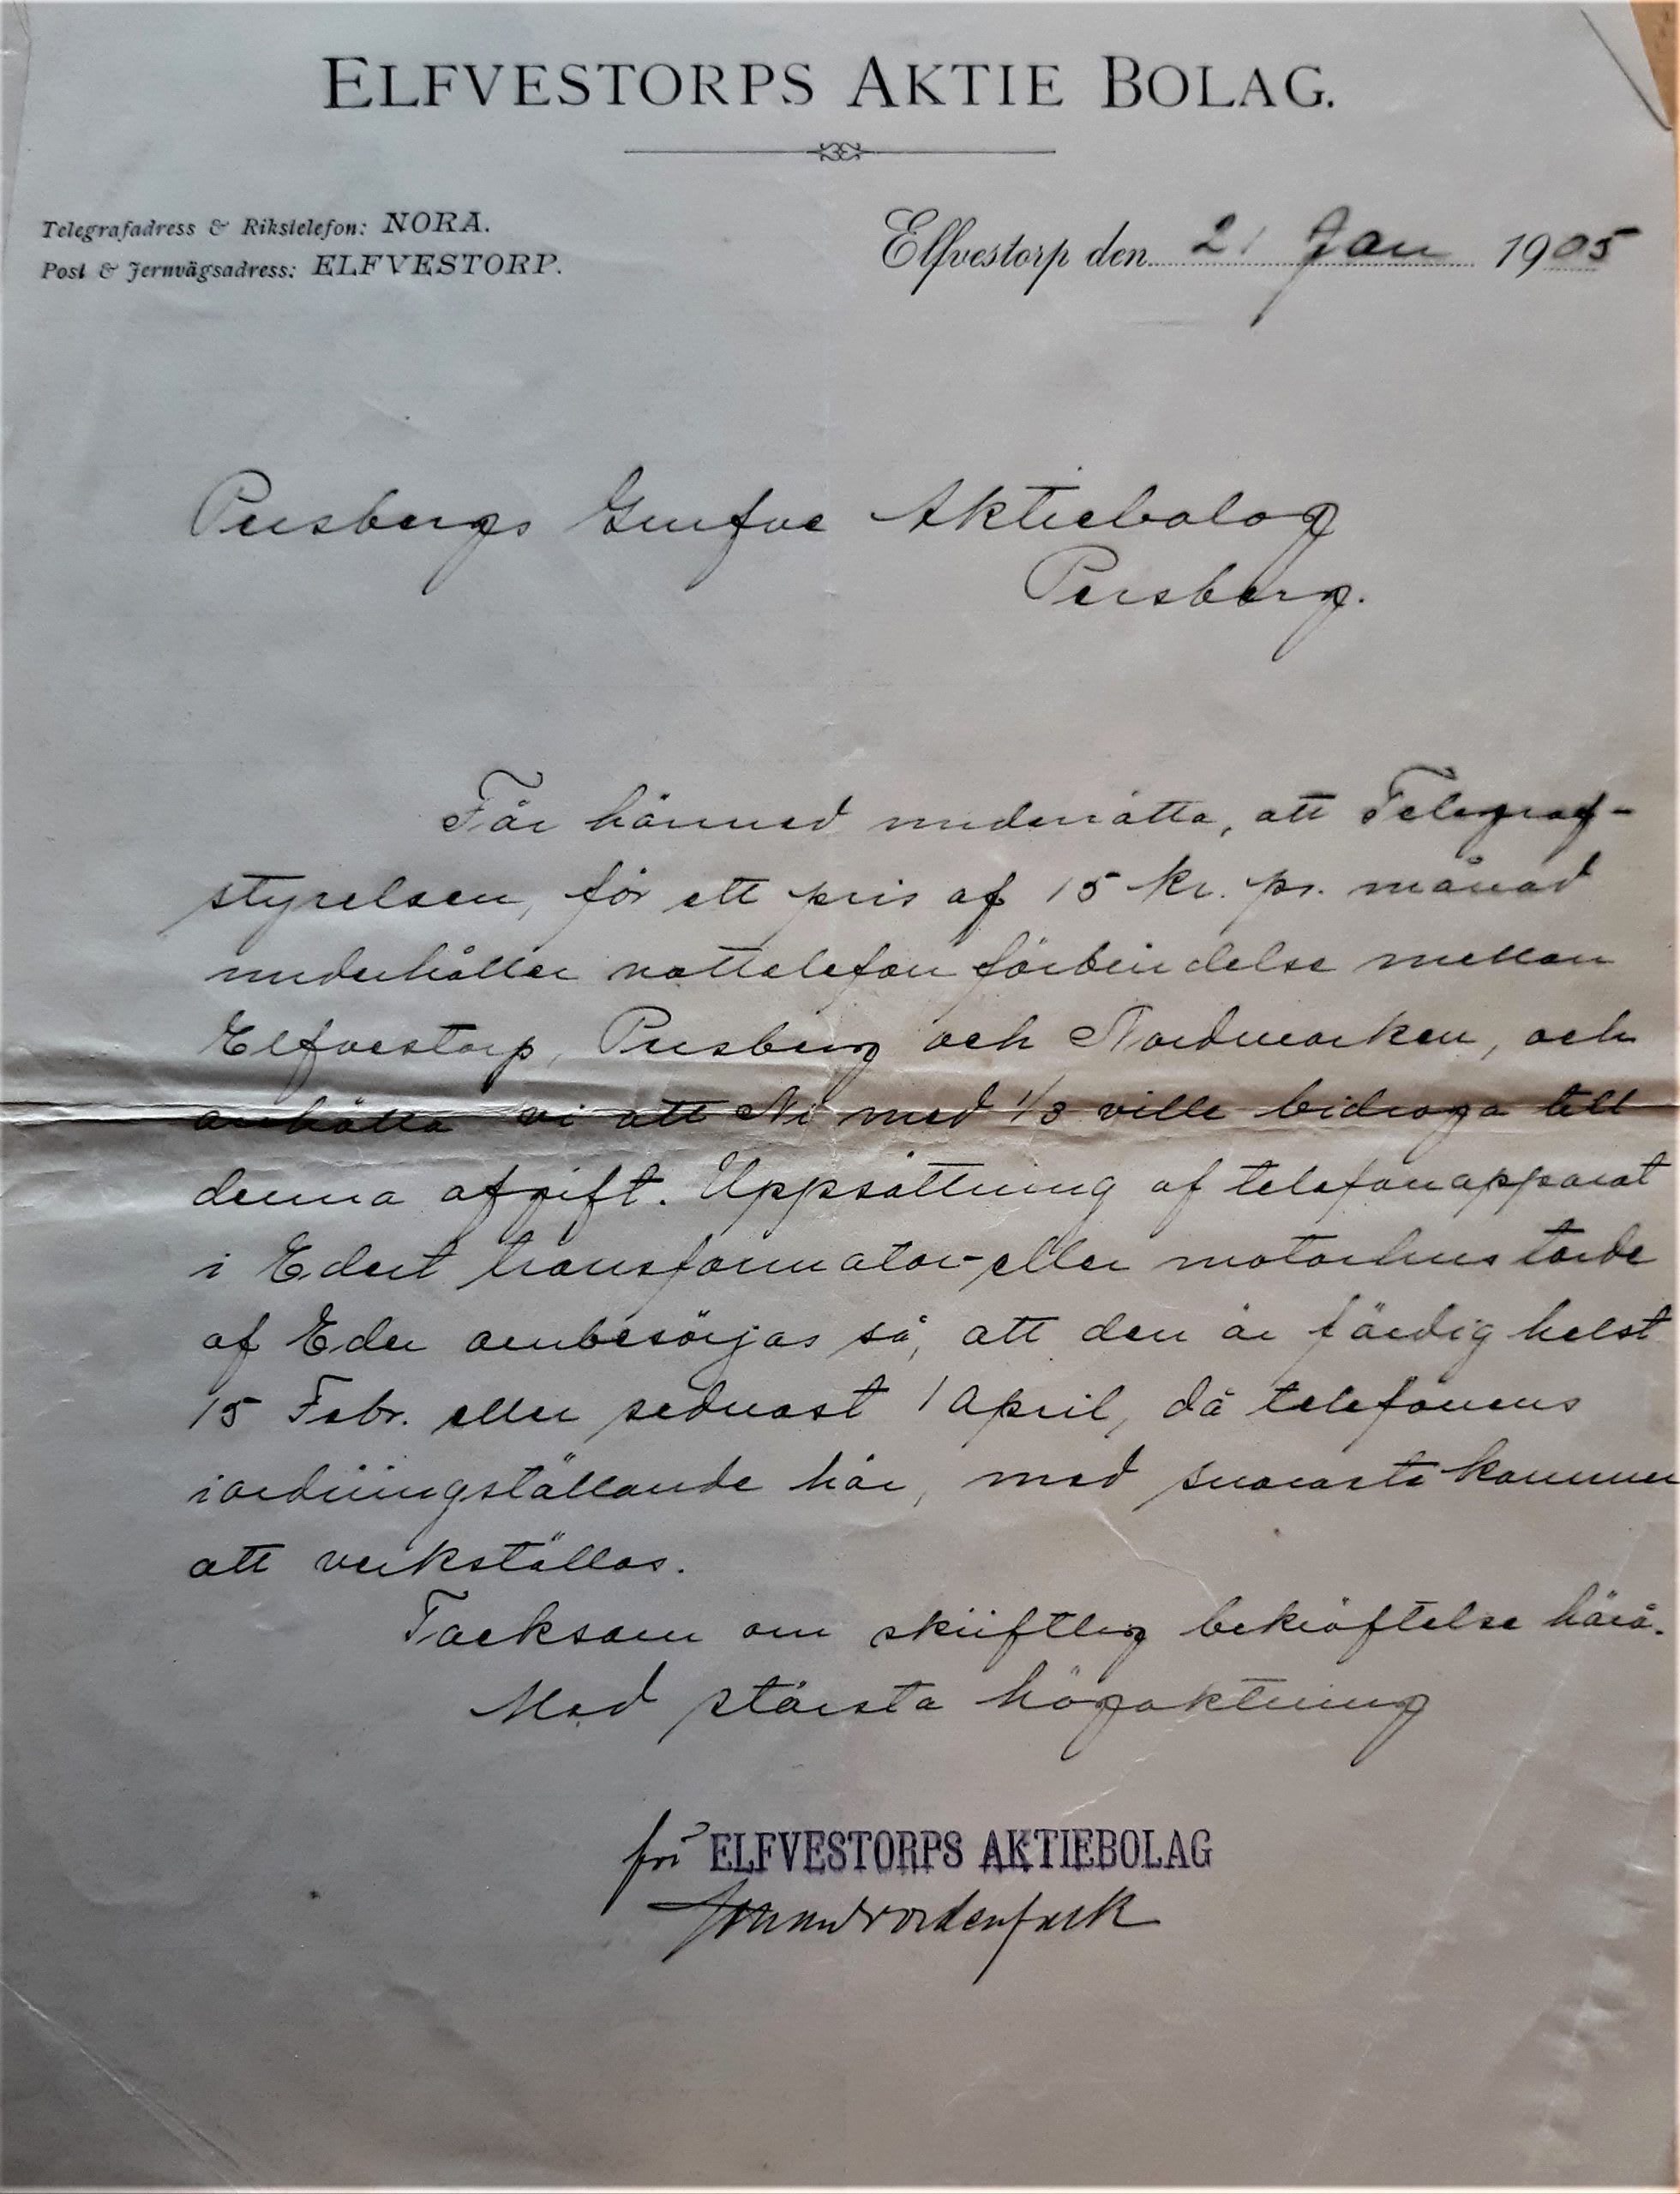 ELFVESTORPS AKTIE BOLAG.
Telegrafadress & Rikstelefon: NORA.
Post & Jernvägsadress: ELFVESTORP.
Elfvestorp den 21 Jan 1905
Persbergs Grufve Aktiebolag
Persberg.
Får härmed underrätta, att Telegraf-
styrelsen, för ett pris af 15 kr. pr. månad
underhåller nattelefon förbindelse mellan
Elfvestorp, Persberg och Nordmarken, och
anhålla vi att Ni med 1/3 ville bidraga till
denna afgift. Uppsättning af telefonapparat
i Edert transformator- eller motorhus torde
af Eder ombesörjas så, att den är färdig helst
15 Febr. eller sednast 1 April, då telefonens
iordningställande här, med snaraste kommer
att verkställas.
Tacksam om skriftlig bekräftelse härå.
Med största högaktning
för ELFVESTORPS AKTIEBOLAG